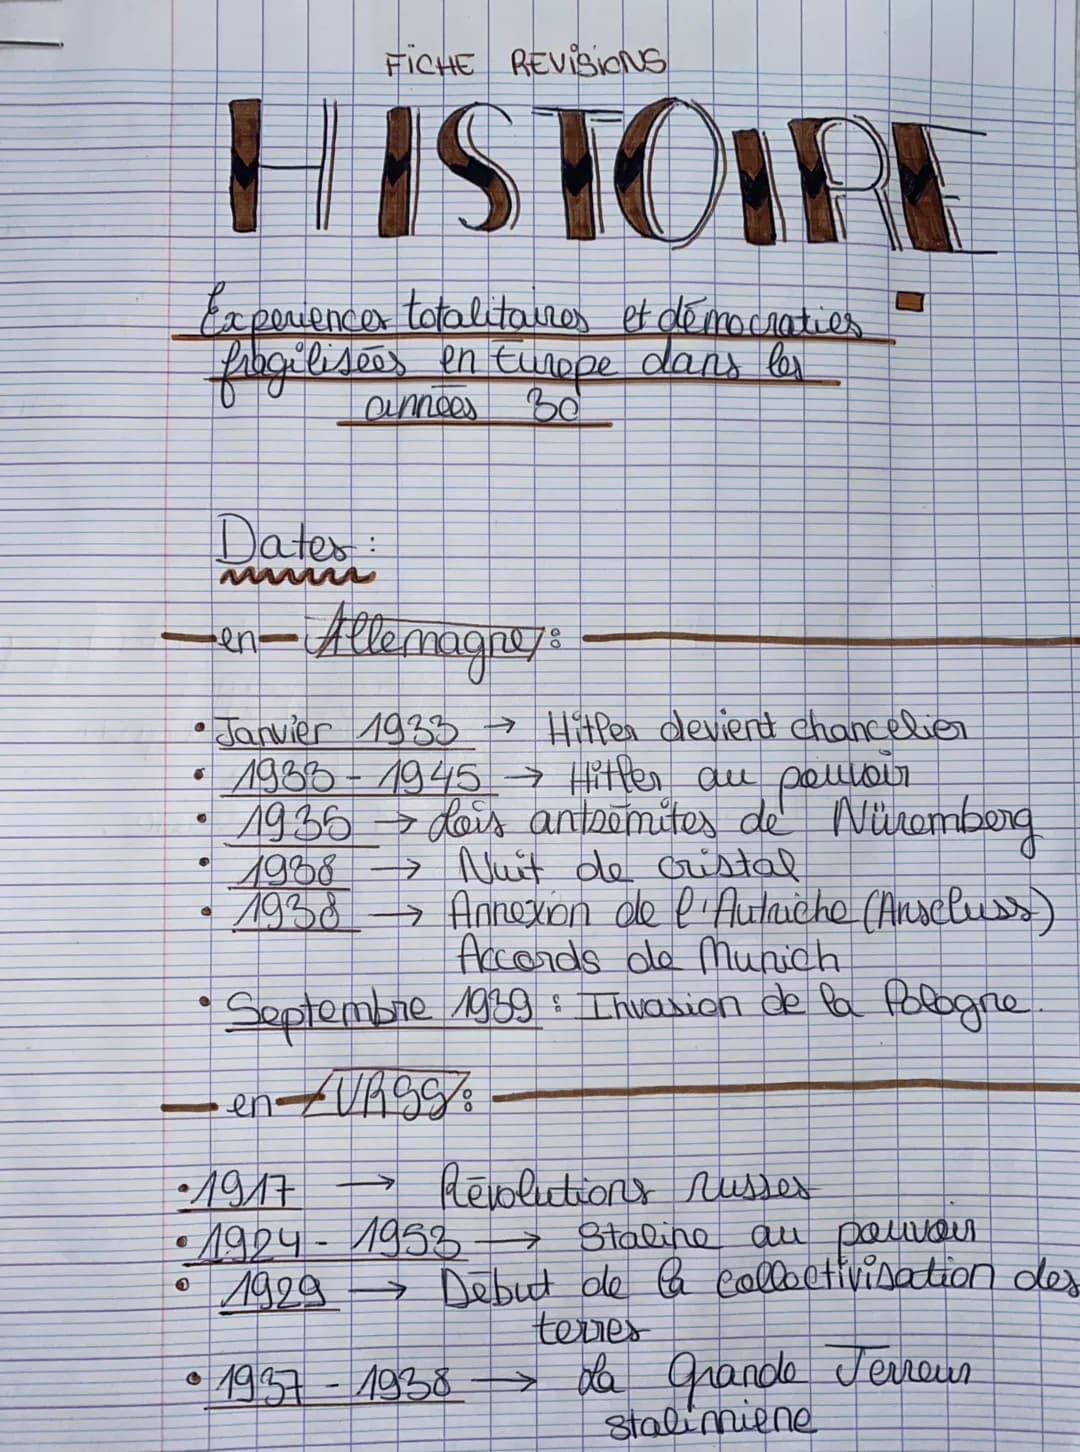 FICHE REVISIONS
HISTOIRE
Expériences totalitaires et démocraties
fragilisées en Europe dans les
années 30
Dates :
en Allemagne :
• Janvier 1933 → Hitler devient chancelier
• 1933 - 1945 → Hitler au pouvoir
• 1935 → Lois antisémites de Nüremberg
• 1938 → Nuit de cristal
• 1938 → Annexion de l'Autriche (Anscluss)
Accords de Munich
• Septembre 1939 : Invasion de la Pologne.
en URSS :
• 1917 → Révolutions russes
• 1924 - 1953 → Staline au pouvoir
• 1929 → Début de la collectivisation des
terres
• 1937 - 1938 → La Grande Terreur
stalinniene